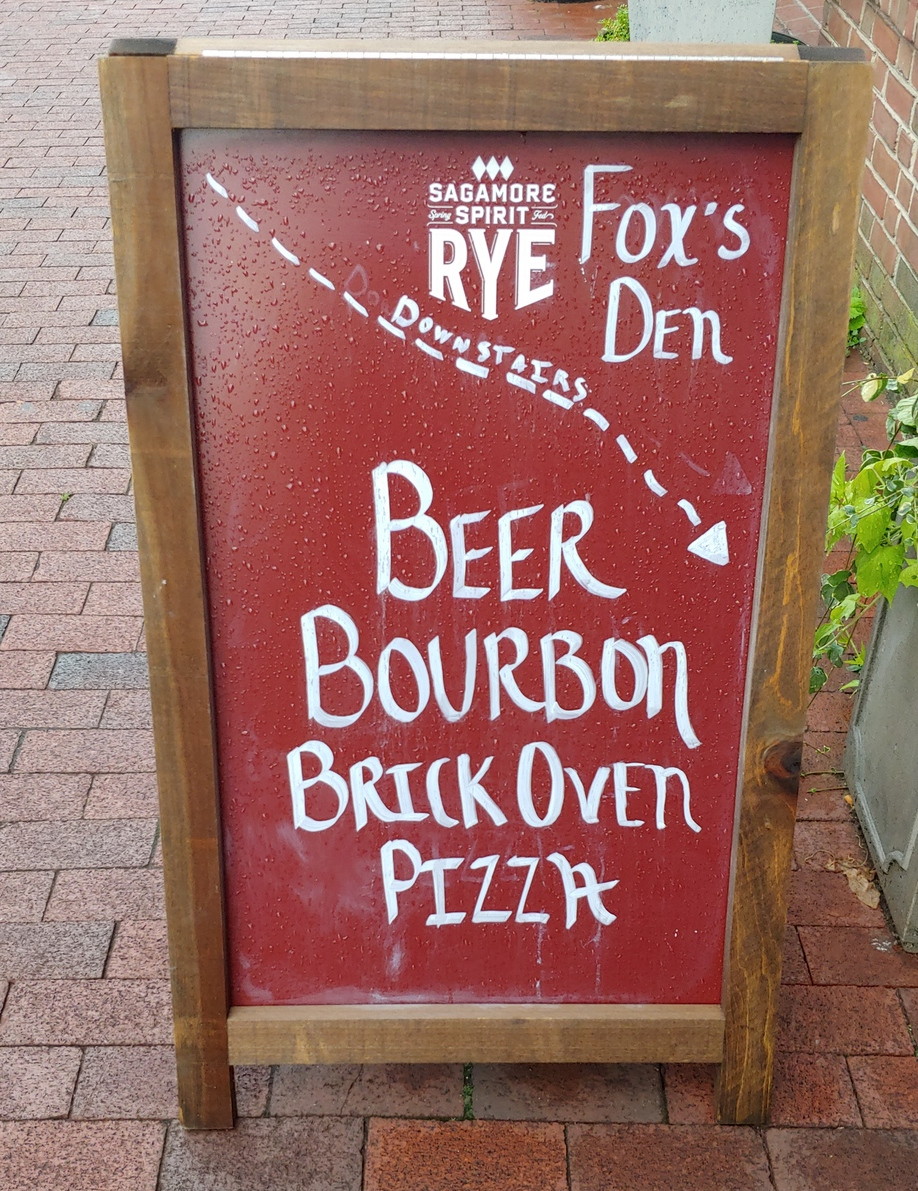 SAGAMORE
Spring SPIRIT Fed
RYE
Fox's
Den
DOWNSTAIRS
BEER
BOURBON
BRICK OVEN
PIZZA